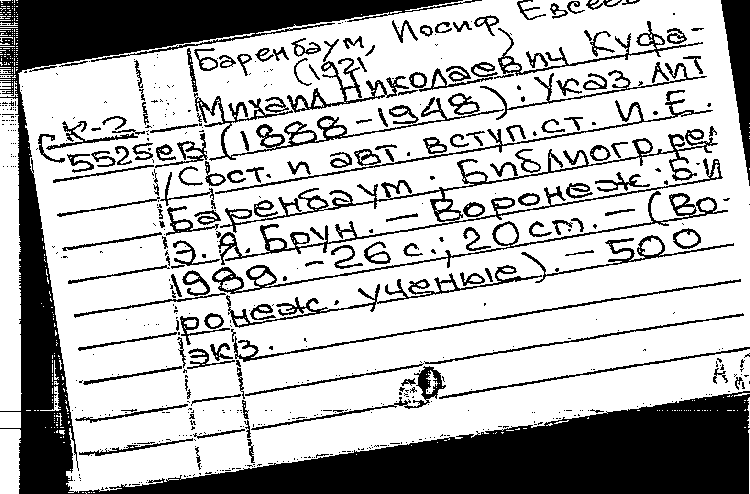 Баренбаум, Иосиф Евсее
(1921
Михаил Николаевич Куфа-
К-2
5525ев
(1888-1948) : Указ. лит
/Сост. и авт. вступ. ст. И. Е.
Баренбаум ; Библиогр. ред
Э. Я. Брун. – Воронеж : Б. и
1989. – 26 с. ; 20 см. – (Во-
ронеж. ученые). – 500
экз.